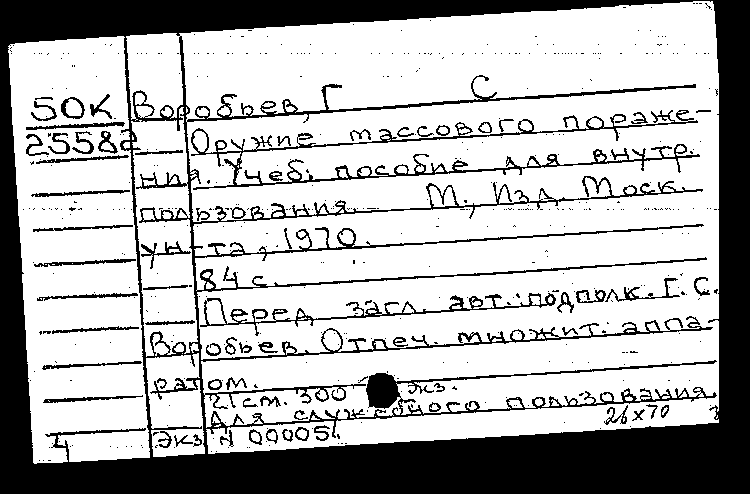 50К Воробьев, Г С
25582 Оружие массового пораже-
ния. Учеб. пособие для внутр.
пользования. М., Изд. Моск.
ун-та, 1970.
84 с.
Перед загл. авт.: подполк. Г.С.
Воробьев. Отпеч. множит. аппа-
ратом.
21см. 300 экз.
Для служебного пользования
26х70
4 Экз N 000054